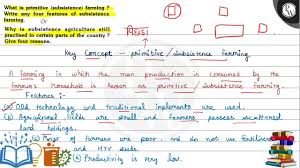 What is primitive (subsistence) farming ?
Write any four features of subsistence
farming.
Or
Why is subsistence agriculture still
practised in certain parts of the country ?
Give four reasons.
Key Concept - primitive / subsistence farming
A farming in which the main production is consumed by the
farmer's household is known as primitive / subsistence farming.
Features :-
(a) Old technology and traditional implements are used.
(b) Agricultural fields are small and farmers possess scattered
land holdings.
(c) Most of farmers are poor and do not use fertilizers
and HYV seeds.
(d) Productivity is very low.